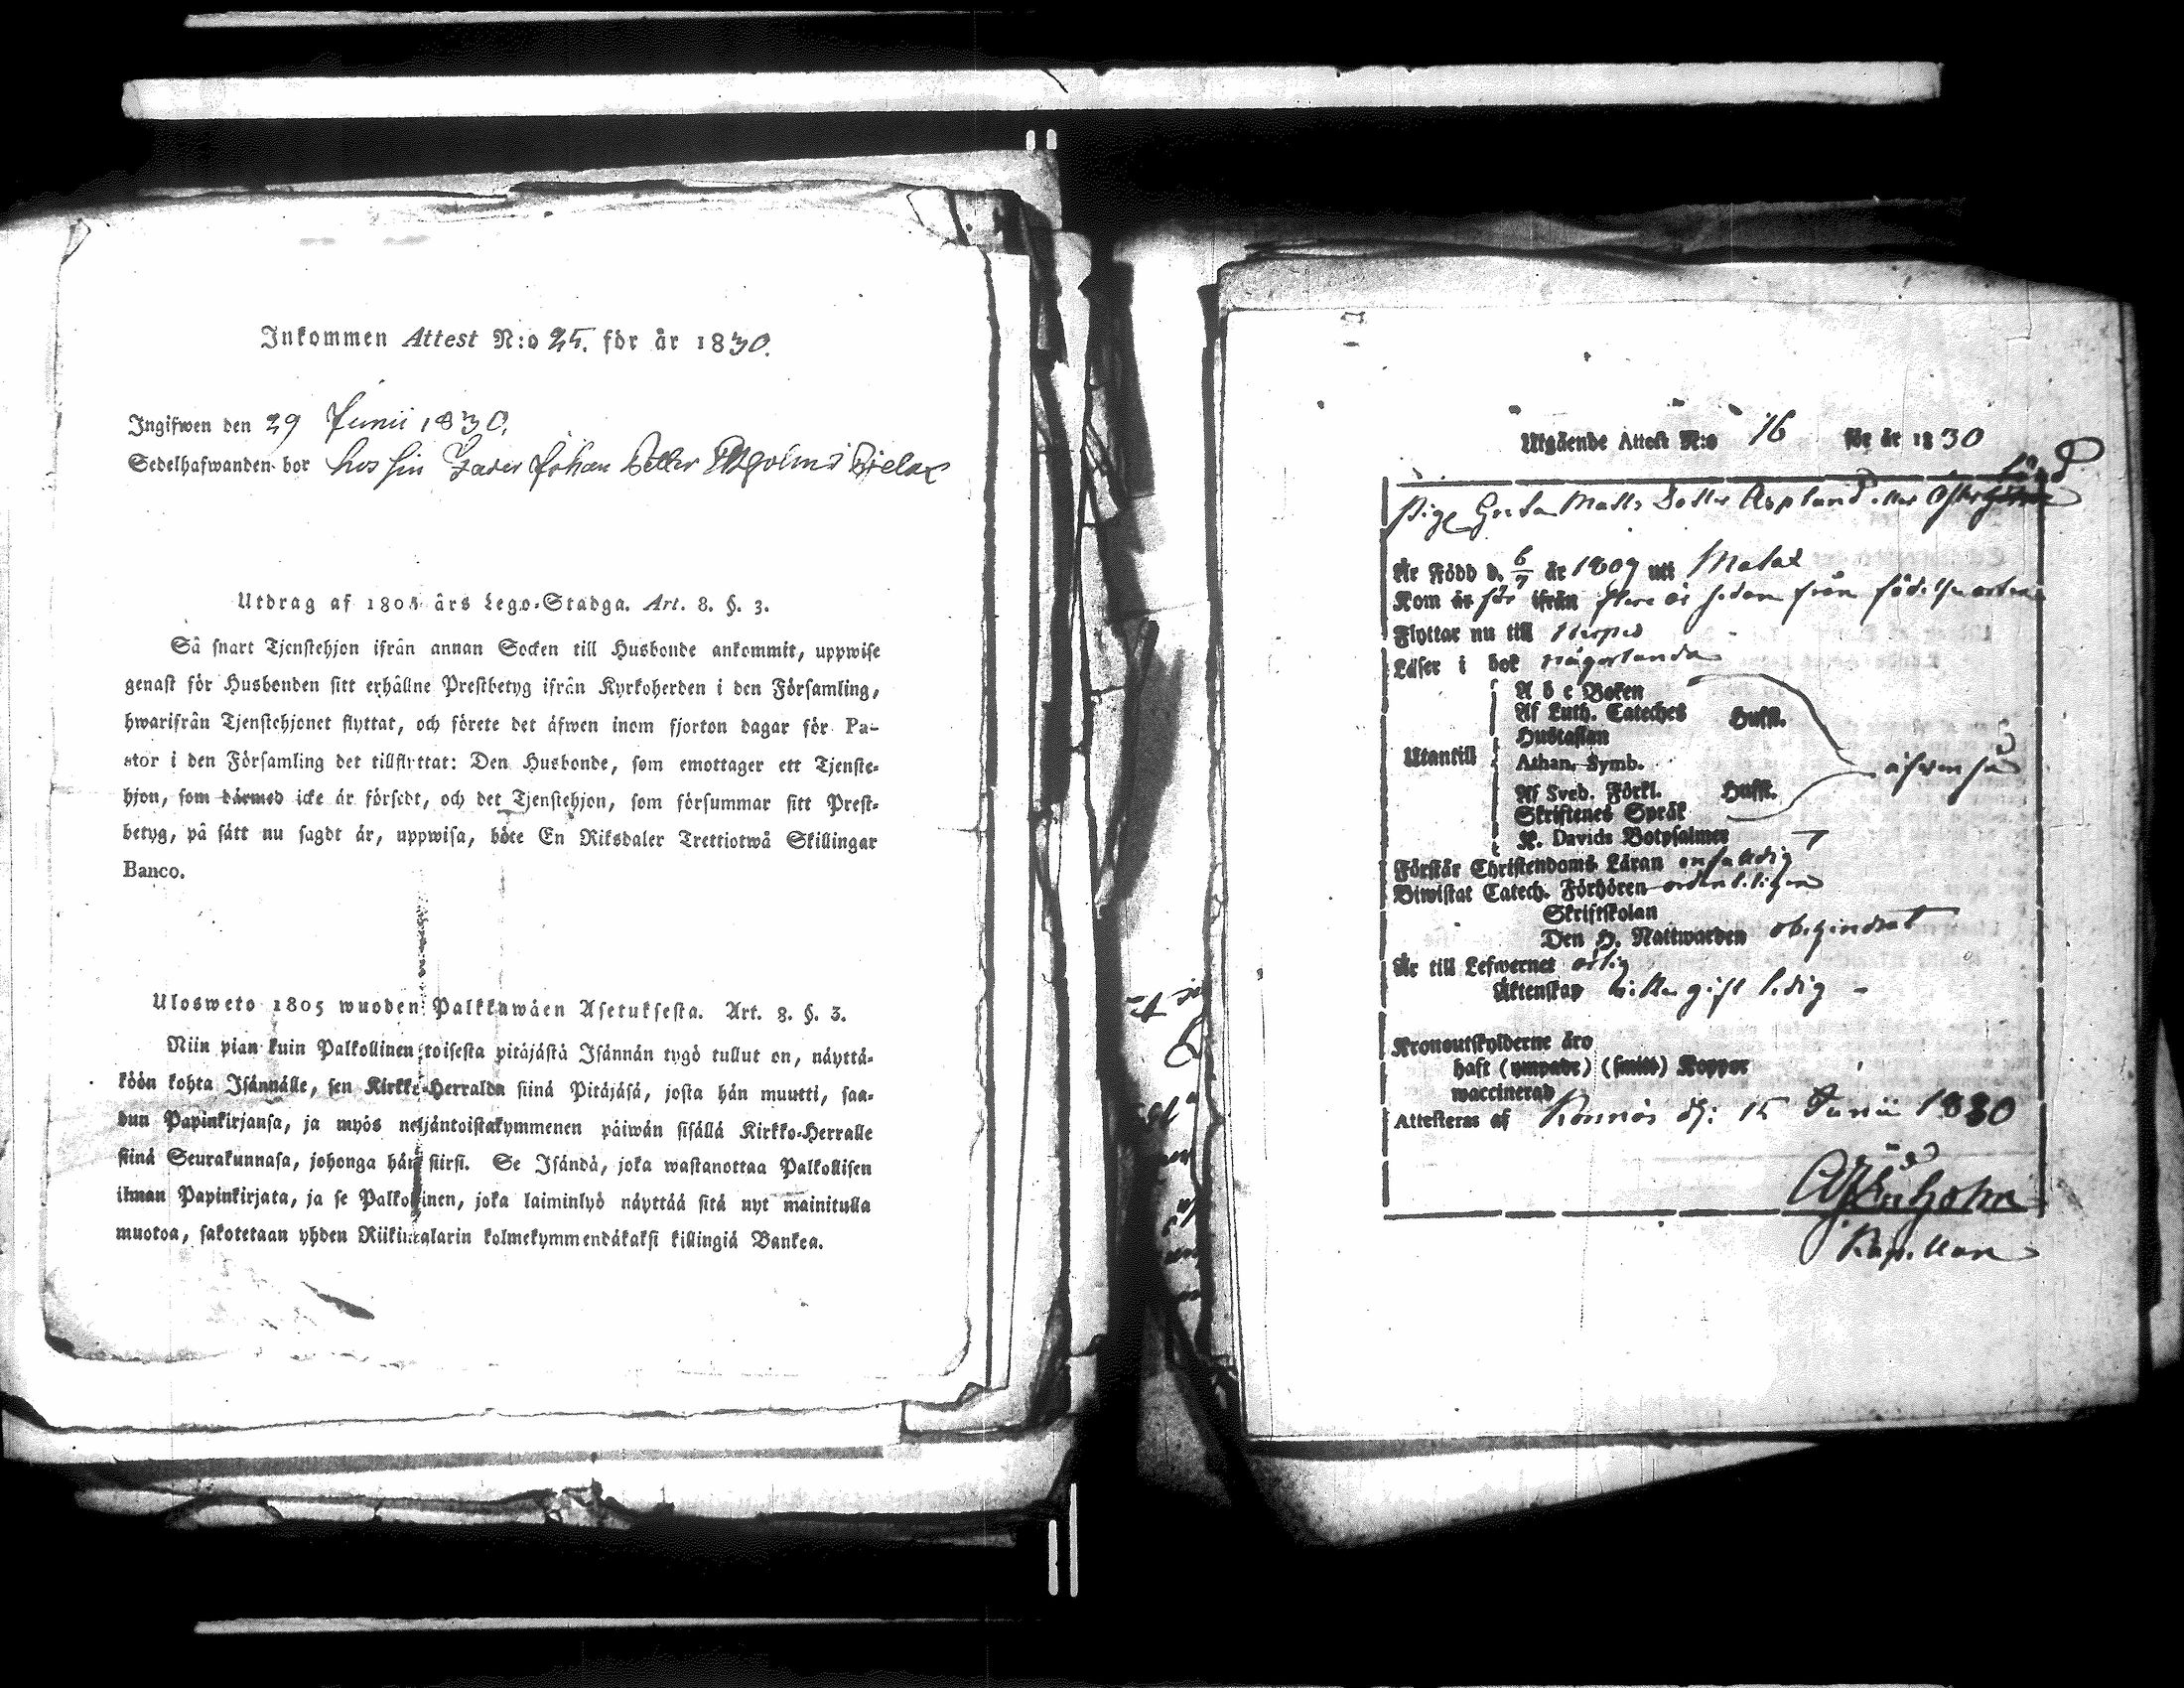 Inkommen Attest N:o 25. för år 1830.
Ingifwen den 29 Junii 1830.
Sedelhafwanden bor hos sin Fader Johan Petter
Utdrag af 1805 års Lego-Stadga. Art. 8. §. 3.
Så snart Tjenstehjon ifrån annan Socken till Husbonde ankommit, uppwise
genast för Husbonden sitt erhållne Prestbetyg ifrån Kyrkoherden i den Församling,
hwarifrån Tjenstehjonet flyttat, och förete det äfwen inom fjorton dagar för Pa-
stor i den Församling det tillflyttat: Den Husbonde, som emottager ett Tjenste-
hjon, som därmed icke är försedt, och det Tjenstehjon, som försummar sitt Prest-
betyg, på sätt nu sagdt är, uppwisa, böte En Riksdaler Trettiotwå Skillingar
Banco.
Ulosweto 1805 wuoden Palkkawäen Asetuksesta. Art. 8. §. 3.
Niin pian kuin Palkollinen toisesta pitäjästä Isännän tygö tullut on, näyttä-
köön kohta Isännälle, sen Kirkko-Herralda siinä Pitäjäsä, josta hän muutti, saa-
dun Papinkirjansa, ja myös neljäntoistakymmenen päiwän sisällä Kirkko-Herralle
siinä Seurakunnasa, johonga hän siirsi. Se Isändä, joka wastanottaa Palkollisen
ilman Papinkirjata, ja se Palkollinen, joka laiminlyö näyttää sitä nyt mainitulla
muotoa, sakotetaan yhden Riikintalarin kolmekymmendäkaksi killingiä Bankea.
Utgående Attest N:o 16 för år 1830
Pige Greta Matts Dotter Aspland eller
Är Född d. 6/7 år 1809 uti Malax
Kom år för ifrån flere år sedan från födelseorten
Flyttar nu till
Läser i bok någorlunda
Utantill
A b c Boken
Af Luth. Cateches Hufst.
Hustaflan
Athan. Symb.
Af Sveb. Förkl. Hufst.
Skriftenes Språk
K. Davids Botpsalmer
äfven så
Förstår Christendoms Läran enfaldig
Biwistat Catech. Förhören ordentligen
Skriftskolan
Den H. Nattwarden obehindrat
Är till Lefwernet ärlig
Äktenskap gift ledig -
Kronoutskylderne äro
haft (ympade) (smitt) Koppor
waccinerad
Attesteras af d: 15 Junii 1830
Kapellan